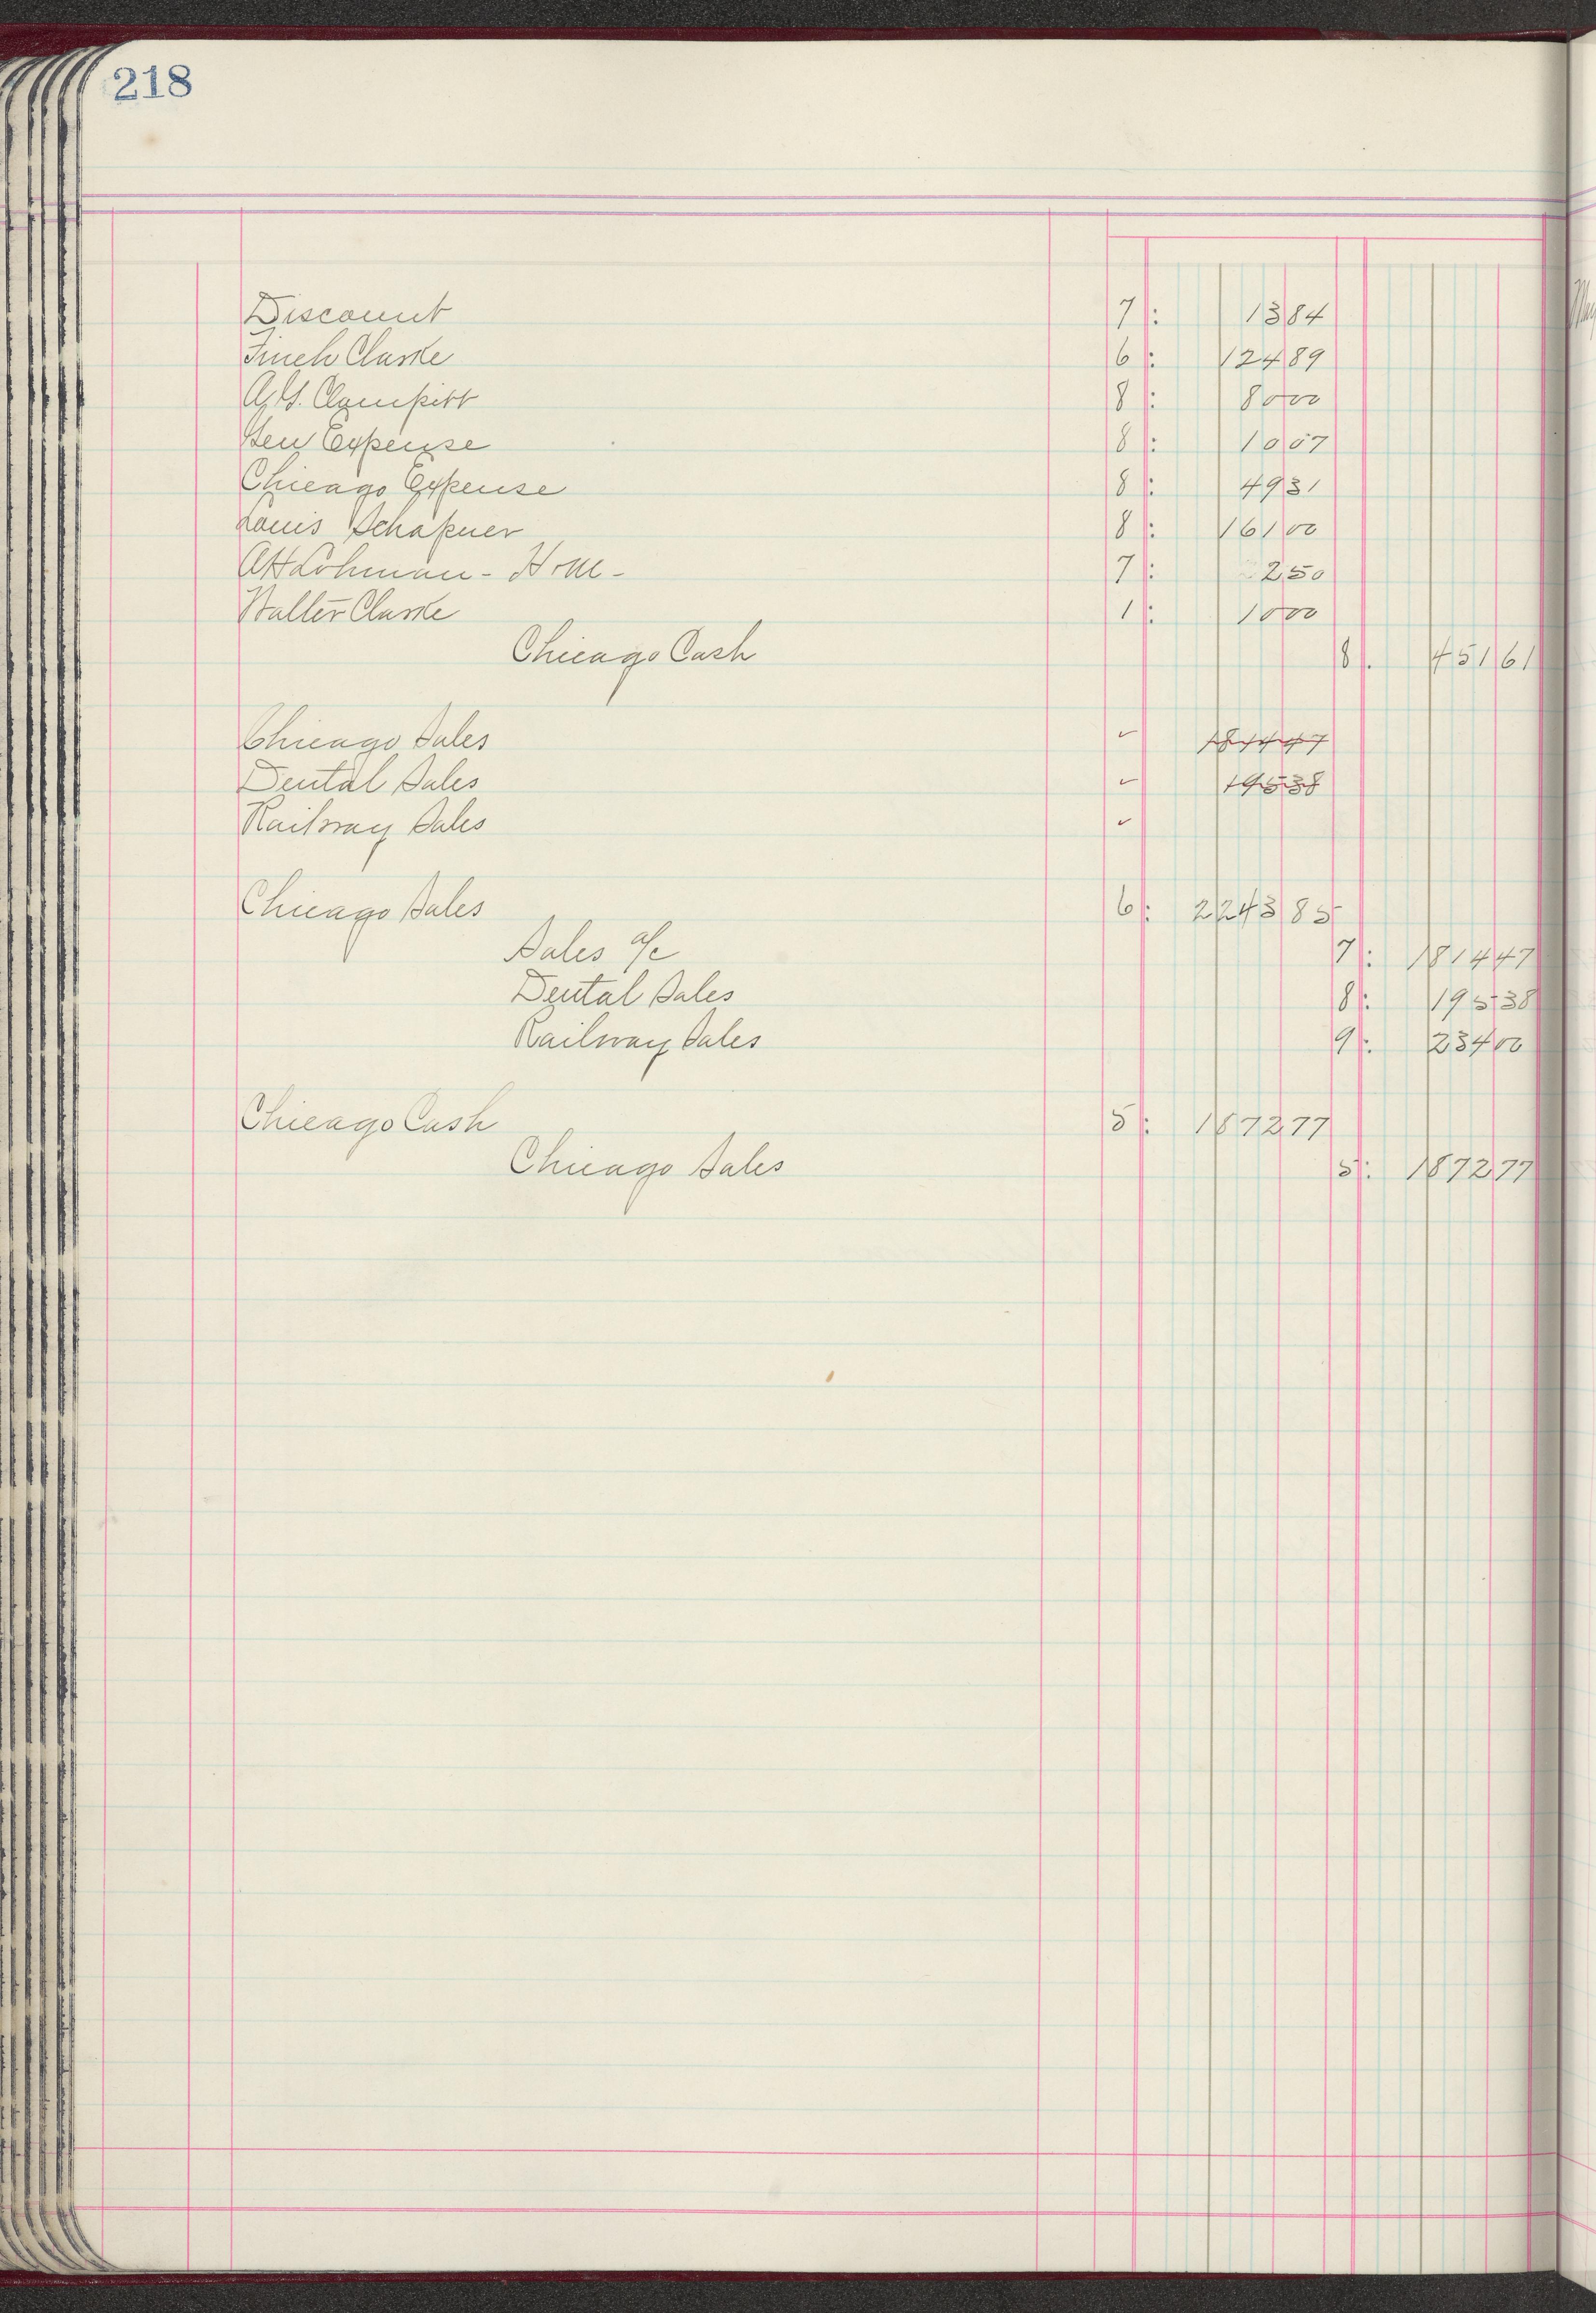 218
Discount 7 : 13 84
Finch Clarke 6 : 124 89
A. G. Clampitt 8 : 80 00
Gen Expense 8 : 10 07
Chicago Expense 8 : 49 31
Louis Schafner 8 : 161 00
A H Lohman - Hotel - 7 : 2 50
Walter Clarke 1 : 10 00
Chicago Cash 8 : 451 61
Chicago Sales ✓ 1814 47
Dental Sales ✓ 195 38
Railway Sales ✓
Chicago Sales 6 : 2243 85
Sales a/c 7 : 1814 47
Dental Sales 8 : 195 38
Railway Sales 9 : 234 00
Chicago Cash 5 : 1872 77
Chicago Sales 5 : 1872 77